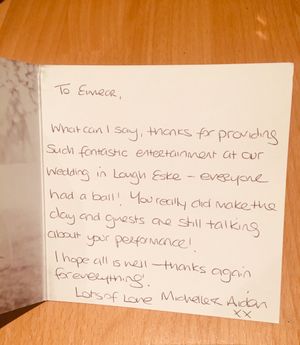 To Eimear,
What can I say, thanks for providing
such fantastic entertainment at our
wedding in Lough Eske - everyone
had a ball! You really did make the
day and guests are still talking
about your performance!
I hope all is well - thanks again
for everything!
Lots of Love Michelle & Aidan
xx